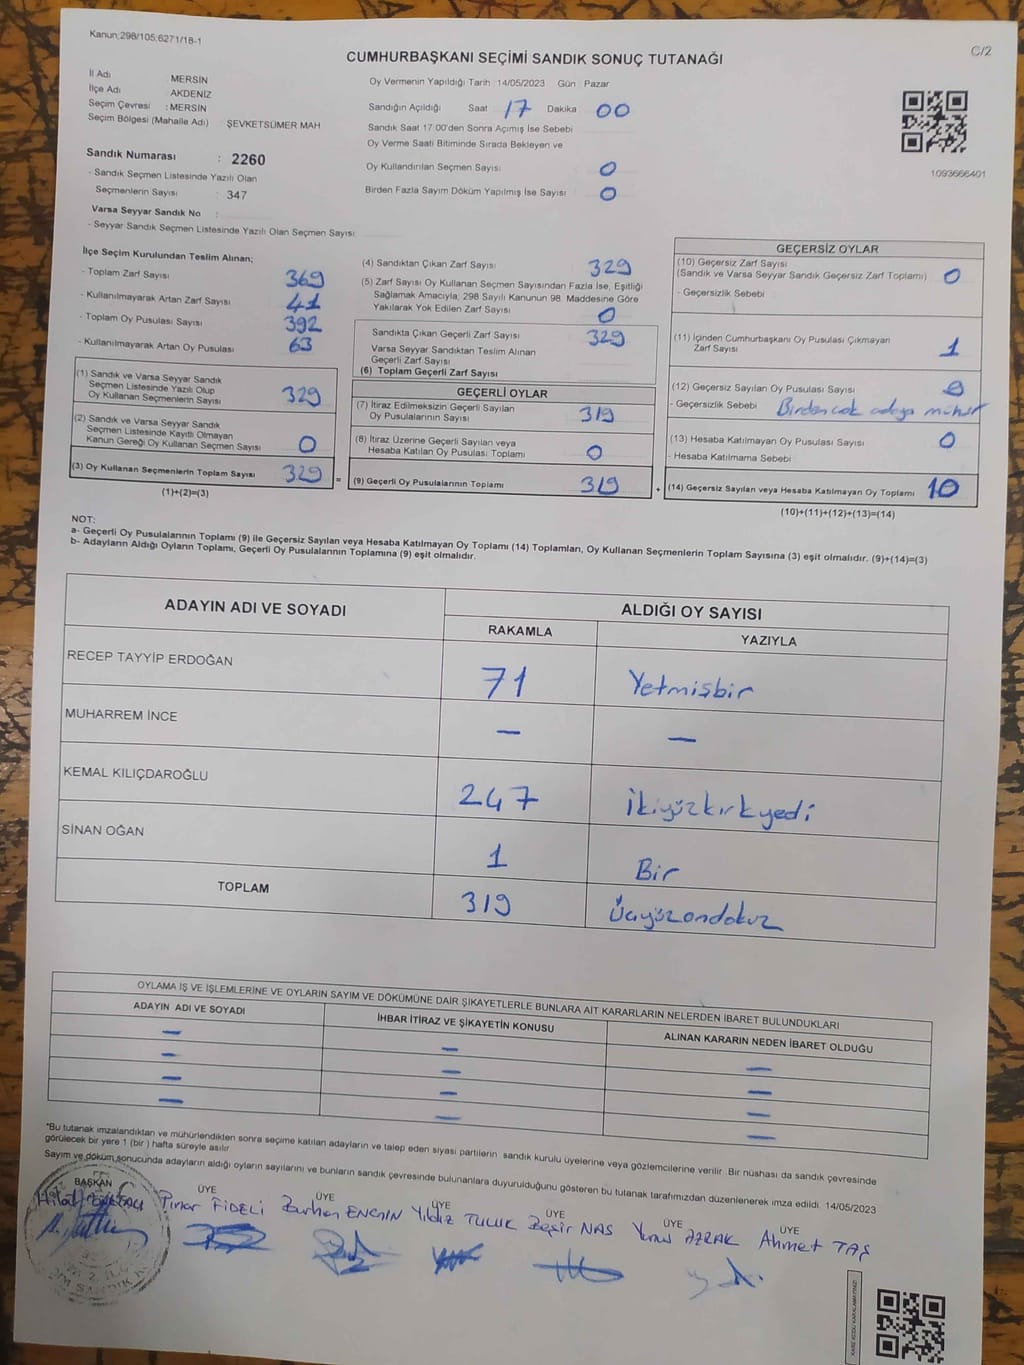 Kanun;298/105;6271/18-1
C/2
CUMHURBAŞKANI SEÇİMİ SANDIK SONUÇ TUTANAĞI
İl Adı MERSİN
İlçe Adı AKDENİZ
Seçim Çevresi : MERSİN
Seçim Bölgesi (Mahalle Adı) : ŞEVKETSÜMER MAH
Sandık Numarası : 2260
- Sandık Seçmen Listesinde Yazılı Olan
Seçmenlerin Sayısı : 347
Varsa Seyyar Sandık No :
- Seyyar Sandık Seçmen Listesinde Yazılı Olan Seçmen Sayısı
Oy Vermenin Yapıldığı Tarih : 14/05/2023 Gün : Pazar
Sandığın Açıldığı Saat 17 Dakika 00
Sandık Saat 17:00'den Sonra Açımış İse Sebebi
Oy Verme Saati Bitiminde Sırada Bekleyen ve
Oy Kullandırılan Seçmen Sayısı 0
Birden Fazla Sayım Döküm Yapılmış İse Sayısı 0
1093666401
İlçe Seçim Kurulundan Teslim Alınan;
- Toplam Zarf Sayısı 369
- Kullanılmayarak Artan Zarf Sayısı 41
- Toplam Oy Pusulası Sayısı 392
- Kullanılmayarak Artan Oy Pusulası 63
(1) Sandık ve Varsa Seyyar Sandık
Seçmen Listesinde Yazılı Olup
Oy Kullanan Seçmenlerin Sayısı 329
(2) Sandık ve Varsa Seyyar Sandık
Seçmen Listesinde Kayıtlı Olmayan
Kanun Gereği Oy Kullanan Seçmen Sayısı 0
(3) Oy Kullanan Seçmenlerin Toplam Sayısı 329 =
(1)+(2)=(3)
(4) Sandıktan Çıkan Zarf Sayısı 329
(5) Zarf Sayısı Oy Kullanan Seçmen Sayısından Fazla İse, Eşitliği
Sağlamak Amacıyla; 298 Sayılı Kanunun 98. Maddesine Göre
Yakılarak Yok Edilen Zarf Sayısı 0
Sandıkta Çıkan Geçerli Zarf Sayısı 329
Varsa Seyyar Sandıktan Teslim Alınan
Geçerli Zarf Sayısı
(6) Toplam Geçerli Zarf Sayısı
GEÇERLİ OYLAR
(7) İtiraz Edilmeksizin Geçerli Sayılan
Oy Pusulalarının Sayısı 319
(8) İtiraz Üzerine Geçerli Sayılan veya
Hesaba Katılan Oy Pusulası Toplamı 0
(9) Geçerli Oy Pusulalarının Toplamı 319 +
GEÇERSİZ OYLAR
(10) Geçersiz Zarf Sayısı
(Sandık ve Varsa Seyyar Sandık Geçersiz Zarf Toplamı) 0
- Geçersizlik Sebebi
(11) İçinden Cumhurbaşkanı Oy Pusulası Çıkmayan
Zarf Sayısı 1
(12) Geçersiz Sayılan Oy Pusulası Sayısı 9
- Geçersizlik Sebebi Birden çok adaya mühür
(13) Hesaba Katılmayan Oy Pusulası Sayısı 0
- Hesaba Katılmama Sebebi
(14) Geçersiz Sayılan veya Hesaba Katılmayan Oy Toplamı 10
(10)+(11)+(12)+(13)=(14)
NOT:
a- Geçerli Oy Pusulalarının Toplamı (9) ile Geçersiz Sayılan veya Hesaba Katılmayan Oy Toplamı (14) Toplamları, Oy Kullanan Seçmenlerin Toplam Sayısına (3) eşit olmalıdır. (9)+(14)=(3)
b- Adayların Aldığı Oyların Toplamı, Geçerli Oy Pusulalarının Toplamına (9) eşit olmalıdır.
ADAYIN ADI VE SOYADI ALDIĞI OY SAYISI
RAKAMLA YAZIYLA
RECEP TAYYİP ERDOĞAN 71 Yetmişbir
MUHARREM İNCE — —
KEMAL KILIÇDAROĞLU 247 ikiyüzkırkyedi
SİNAN OĞAN 1 Bir
TOPLAM 319 Üçyüzondokuz
OYLAMA İŞ VE İŞLEMLERİNE VE OYLARIN SAYIM VE DÖKÜMÜNE DAİR ŞİKAYETLERLE BUNLARA AİT KARARLARIN NELERDEN İBARET BULUNDUKLARI
ADAYIN ADI VE SOYADI İHBAR İTİRAZ VE ŞİKAYETİN KONUSU ALINAN KARARIN NEDEN İBARET OLDUĞU
— — —
— — —
— — —
— — —
*Bu tutanak imzalandıktan ve mühürlendikten sonra seçime katılan adayların ve talep eden siyasi partilerin sandık kurulu üyelerine veya gözlemcilerine verilir. Bir nüshası da sandık çevresinde
görülecek bir yere 1 (bir ) hafta süreyle asılır.
Sayım ve döküm sonucunda adayların aldığı oyların sayılarını ve bunların sandık çevresinde bulunanlara duyurulduğunu gösteren bu tutanak tarafımızdan düzenlenerek imza edildi. 14/05/2023
BAŞKAN ÜYE ÜYE ÜYE ÜYE ÜYE ÜYE
Pınar FİDELİ Burhan ENGİN Yıldız TULUK Beşir NAS Yunus AZRAK Ahmet TAŞ